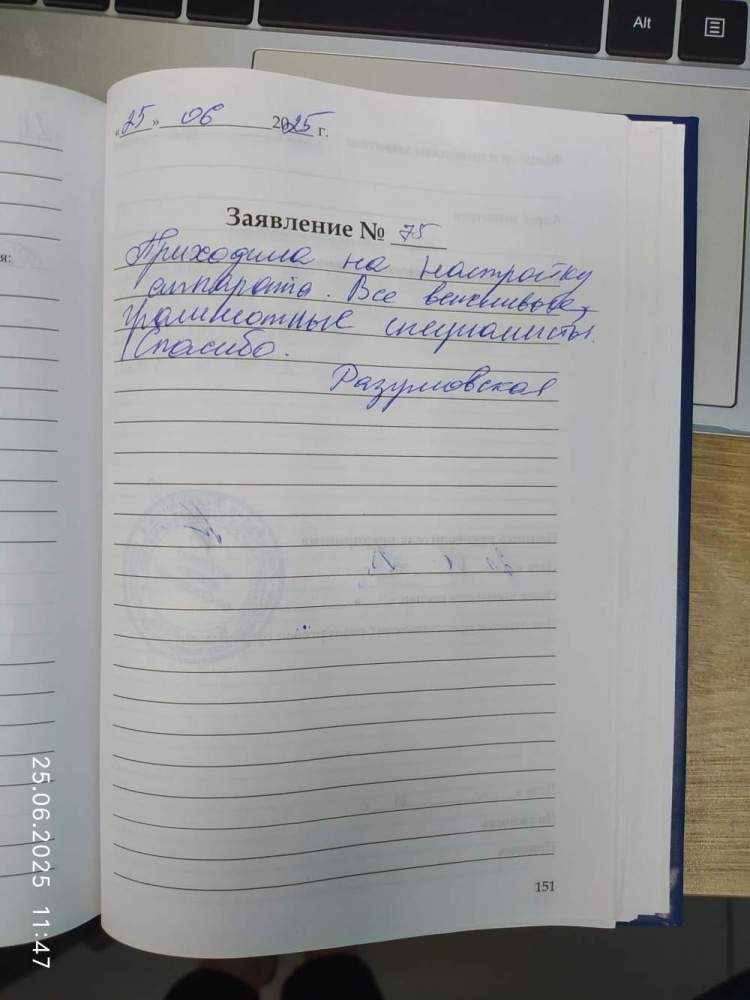 Alt
«25» 06 2025 г.
Заявление № 75
я:
Приходила на настройку
аппарата. Все вежливые,
грамотные специалисты.
Спасибо.
Разумовская
151
25.06.2025 11:47